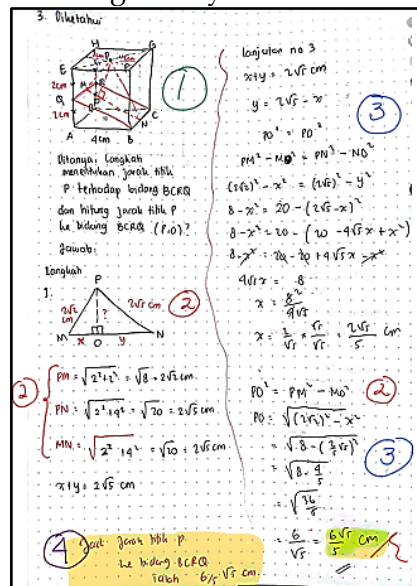 3. Diketahui
H G
E F
P
2cm
Q
2cm
A 4cm B
C
N
1
Ditanya: Langkah
menentukan jarak titik
P terhadap bidang BCRQ
dan hitung jarak titik P
ke bidang BCRQ (P.O)?
Jawab:
Langkah
1.
P
2√2 cm
?
2√5 cm
2
M x O y N
2
PM = √2²+2² = √8 = 2√2 cm
PN = √2²+4² = √20 = 2√5 cm.
MN = √2²+4² = √20 = 2√5 cm
x+y = 2√5 cm
4
Jadi jarak titik p.
ke bidang BCRQ
ialah 6/5 √5 cm.
lanjutan no 3
x+y = 2√5 cm
y = 2√5 - x
3
PO² = PO²
PM² - MO² = PN² - NO²
(2√2)² - x² = (2√5)² - y²
8 - x² = 20 - (2√5 - x)²
8 - x² = 20 - (20 - 4√5 x + x²)
8 - x² = 20 - 20 + 4√5 x - x²
4√5 x = 8
x = 8²/4√5
x = 2/√5 × √5/√5 = 2√5/5 cm
PO² = PM² - MO²
2
PO = √(2√2)² - x²
= √8 - (2/5 √5)²
3
= √8 - 4/5
= √36/5
= 6/√5 = 6√5/5 cm